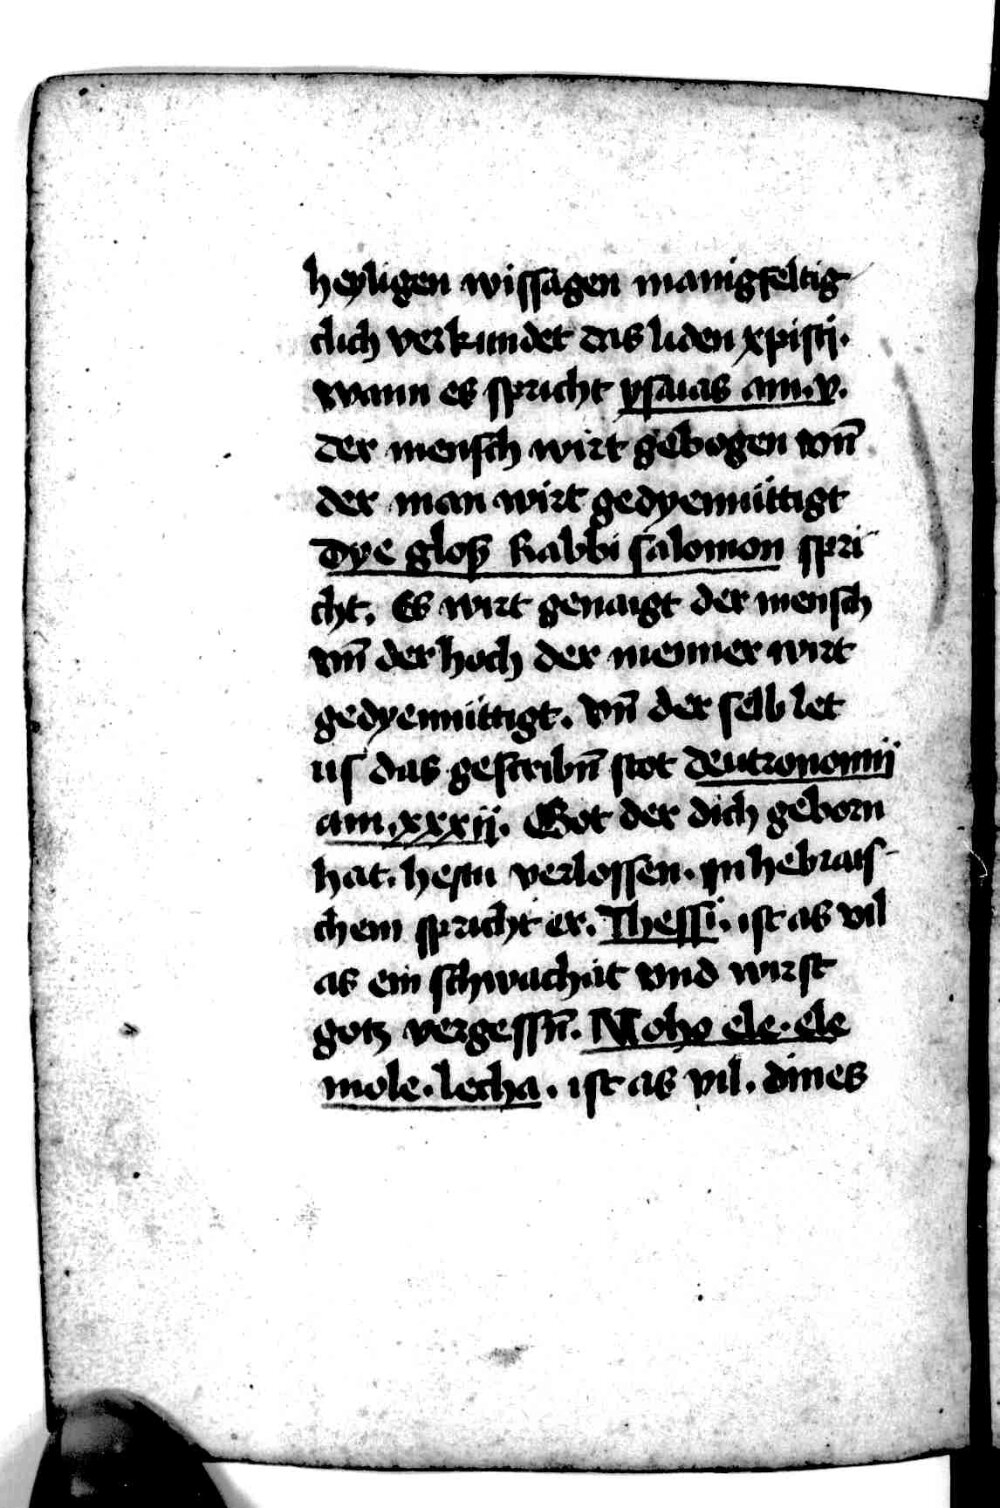 heyligen wissagen manigfeltig
clich verkundet das liden xpistj.
wann es spricht ysaias am. v.
der mensch wirt gebogen vnd̄
der man wirt gedyemüttigt
Dye gloß Rabbi salomon spri
cht. Es wirt genaigt der mensch
vnd̄ der hoch der menner wirt
gedyemüttigt. vnd̄ der selb let
us das gescribn̄ stot deutronomij
am. xxxij. Got der dich geborn
hat. hestu verlossen. jn hebrais-
chem spricht er. Thessi. ist as vil
as ein schwachät vnd wirst
gotz vergessn̄. Moho ele. ele
mole. lecha. ist as vil. dines